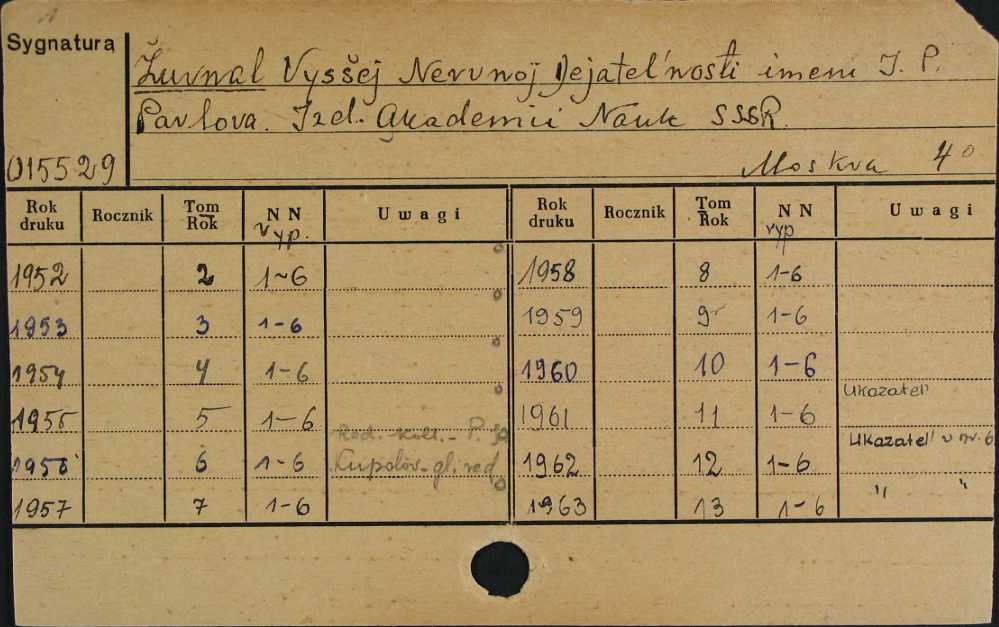 1
Sygnatura
Žurnal Vysšej Nervnoj Dejatel'nosti imeni I. P.
Pavlova. Izd. Akademii Nauk SSSR.
015529
Moskva 4°
Rok druku Rocznik Tom Rok NN vyp. Uwagi Rok druku Rocznik Tom Rok NN vyp Uwagi
1952 2 1-6 1958 8 1-6
1953 3 1-6 1959 9 1-6
1954 4 1-6 1960 10 1-6
1955 5 1-6 1961 11 1-6 Ukazatel'
1956 6 1-6 Red. koll. - P. S. Kupalov - gl. red 1962 12 1-6 Ukazatel' v nr. 6
1957 7 1-6 1963 13 1-6 " "